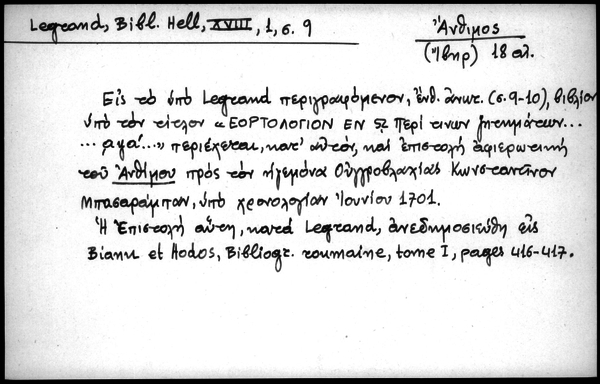 Legrand, Bibl. Hell, XVIII, 1, σ. 9
Ἄνθιμος
(Ἴβηρ) 18 αἰ.
Εἰς τὸ ὑπὸ Legrand περιγραφόμενον, ἐνθ. ἀνωτ. (σ. 9-10), βιβλίον
ὑπὸ τὸν τίτλον «ΕΟΡΤΟΛΟΓΙΟΝ ΕΝ ᾯ περί τινων ζητημάτων...
... αψα'...» περιέχεται, κατ' αὐτόν, καὶ ἐπιστολὴ ἀφιερωτικὴ
τοῦ Ἀνθίμου πρὸς τὸν ἡγεμόνα Οὐγγροβλαχίας Κωνσταντῖνον
Μπασαράμπαν, ὑπὸ χρονολογίαν Ἰουνίου 1701.
Ἡ Ἐπιστολὴ αὕτη, κατὰ Legrand, ἀνεδημοσιεύθη εἰς
Bianu et Hodos, Bibliogr. roumaine, tome I, pages 416-417.